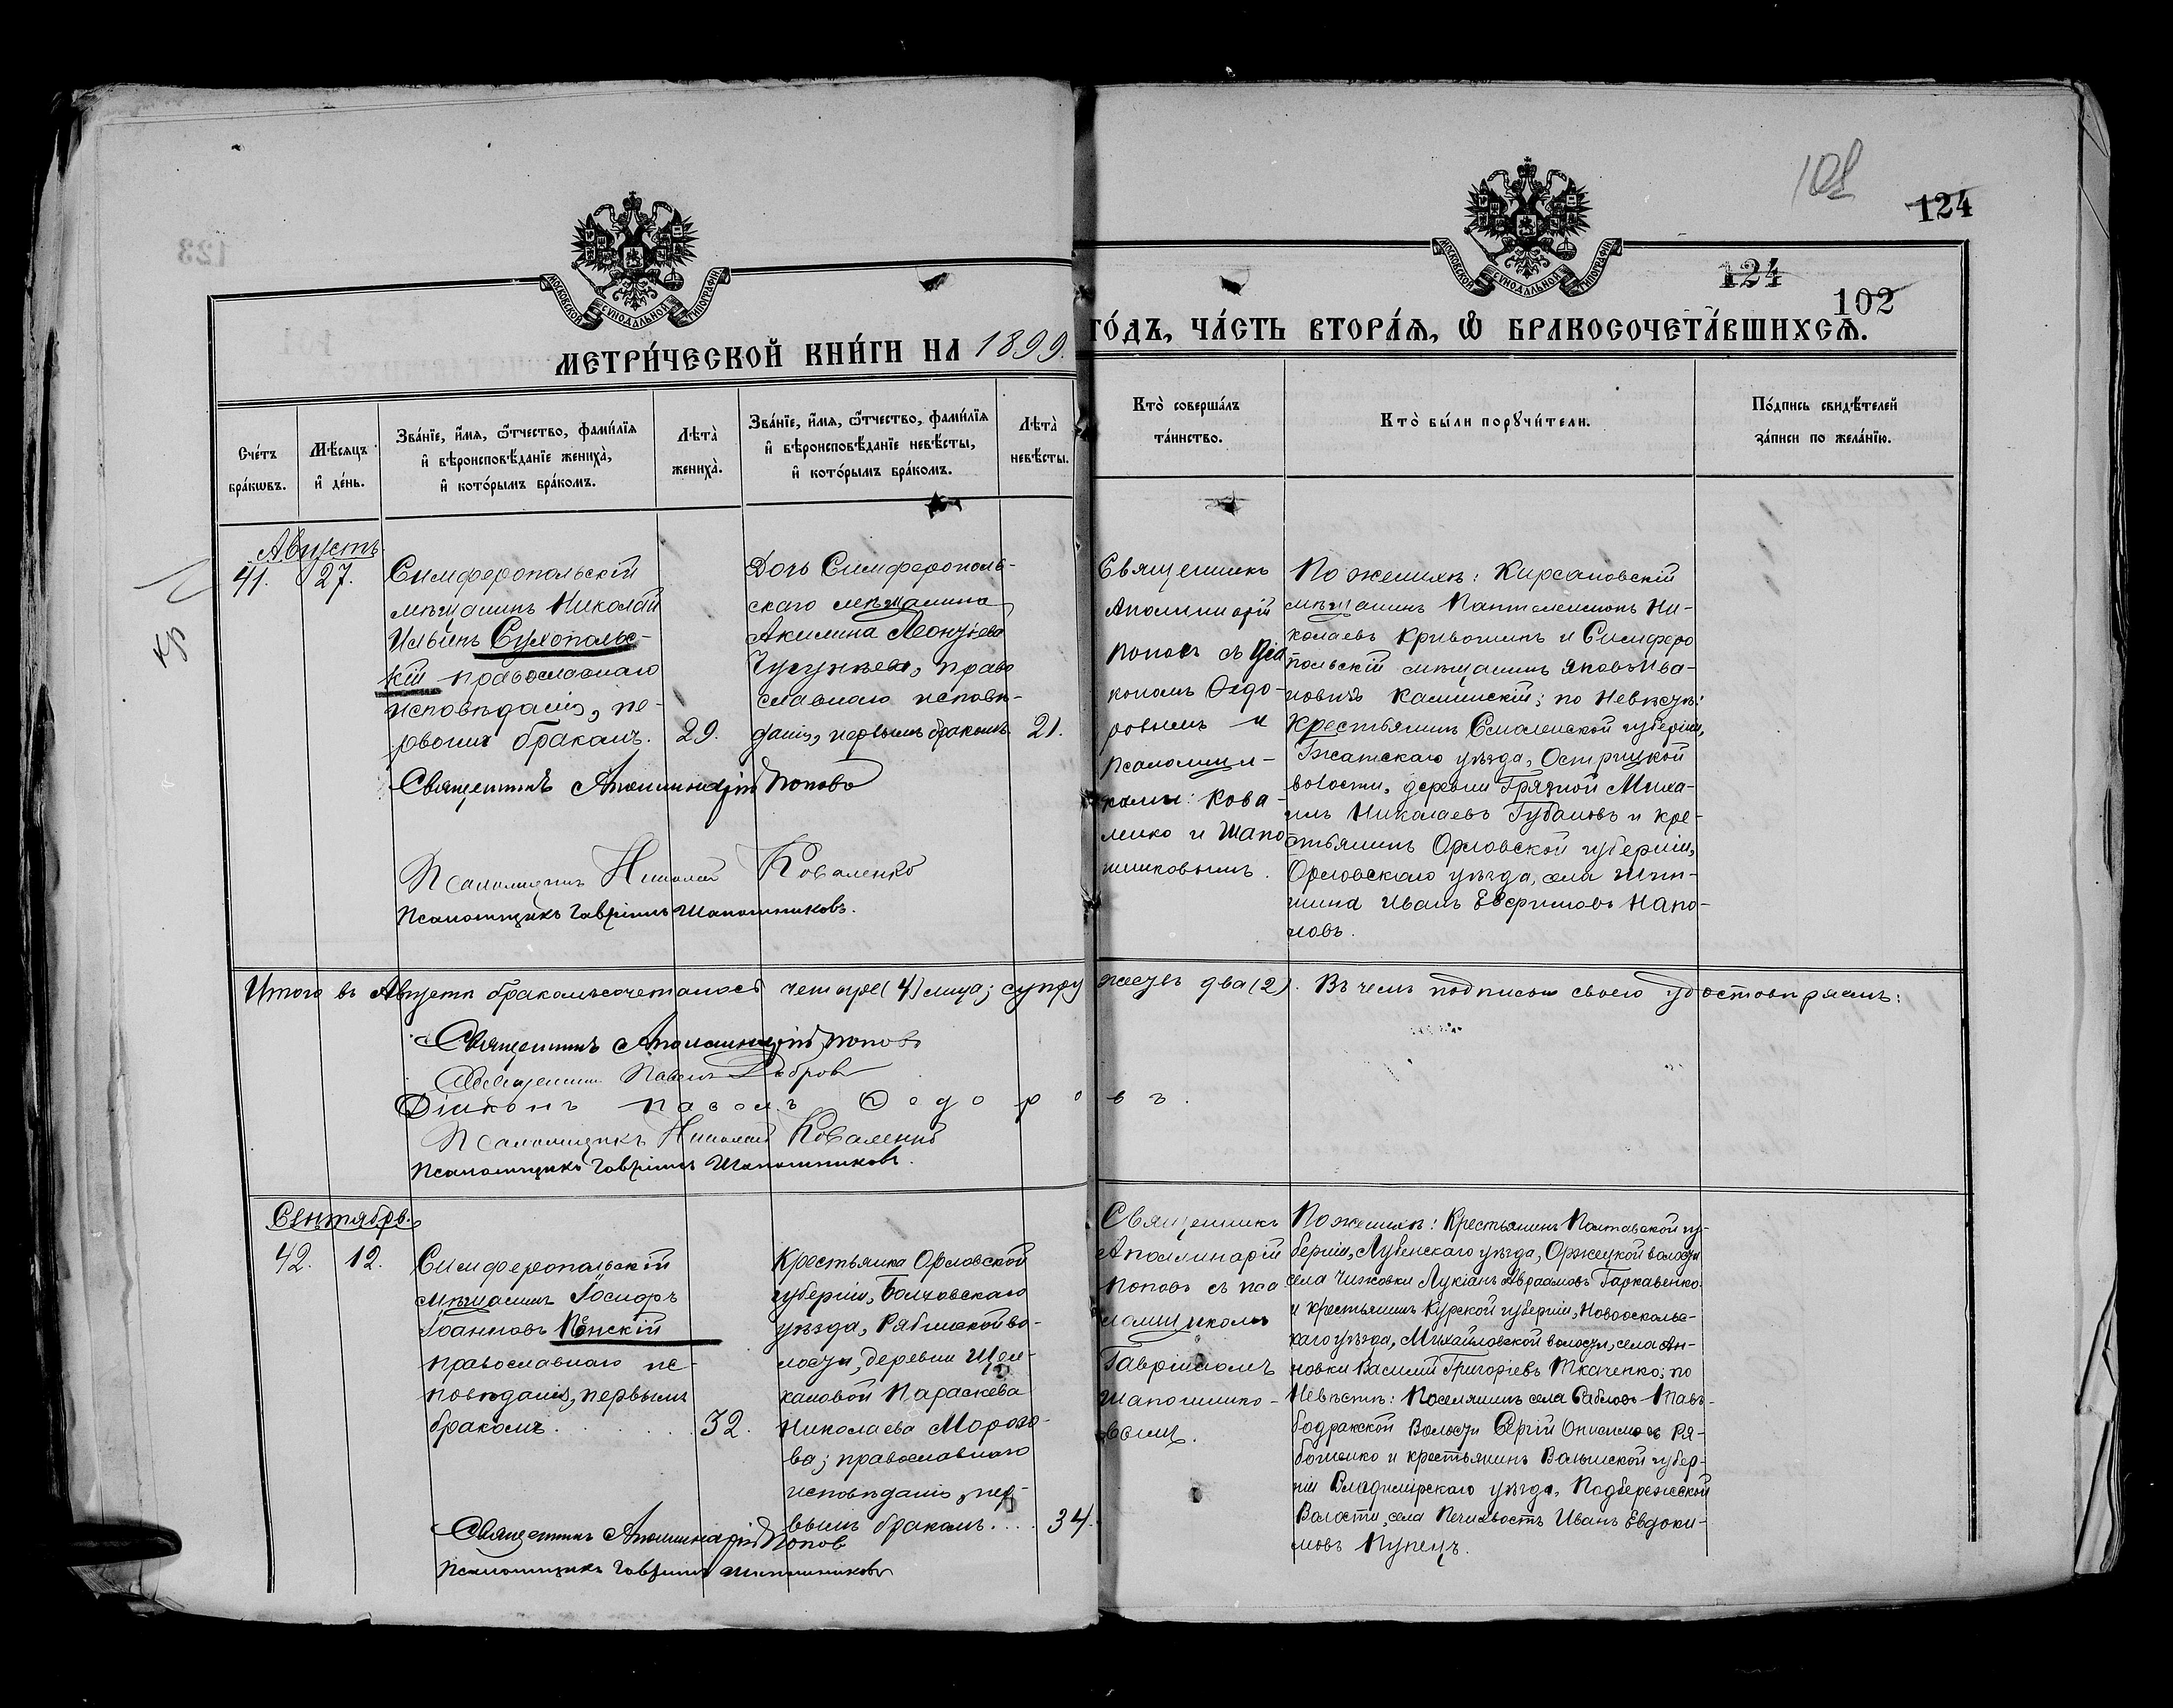 102
124
124
102
МОСКОВСКОЙ СѴНОДАЛЬНОЙ ТИПОГРАФІИ
МОСКОВСКОЙ СѴНОДАЛЬНОЙ ТИПОГРАФІИ
МЕТРИ́ЧЕСКОЙ КНИ́ГИ НА 1899
ГО́ДЪ, ЧА́СТЬ ВТОРА́Ѧ, Ѡ БРАКОСОЧЕТА́ВШИХСѦ.
Сче́тъ
бра́кѡвъ.
Мѣ́сяцъ
и҆ де́нь.
Зва́нїе, и҆́мѧ, ѻ҆́тчество, фами́лїѧ
и҆ вѣроисповѣ́данїе жениха̀,
и҆ кото́рымъ бра́комъ.
Лѣта̀
жениха̀.
Зва́нїе, и҆́мѧ, ѻ҆́тчество, фами́лїѧ
и҆ вѣроисповѣ́данїе невѣ́сты,
и҆ кото́рымъ бра́комъ.
Лѣта̀
невѣ́сты.
Кто̀ соверша́лъ
та́инство.
Кто̀ бы́ли порꙋчи́тели.
По́дпись свидѣ́телей
за́писи по жела́нїю.
Августъ.
41.
27.
Симферопольскій
мѣщанинъ Николай
Ильинъ Сухопольс-
кій православнаго
исповѣданія, пе-
рвымъ бракомъ.
29.
Дочь Симферополь-
скаго мѣщанина
Акилина Леонтьева
православнаго исповѣ-
данія, первымъ бракомъ.
21.
Священникъ
Аполинарій
Поповъ съ Діа
кономъ Ѳедо-
ровымъ и
псаломщи-
ками: Кова-
ленко и Шапо
шниковымъ.
По женихѣ: Кирсановскій
мѣщанинъ Пантелеимонъ Ни-
колаевъ Кривошинъ и Симферо
польскій мѣщанинъ Яковъ Ива-
новичъ Калинскій; по Невѣстѣ:
Крестьянинъ Смоленской губерніи,
Гжатскаго уѣзда, Острицкой
волости, деревни Грязной Миха-
илъ Николаевъ Губановъ и кре-
стьянинъ Орловской губерніи,
Орловскаго уѣзда, села
Иванъ Евфимовъ Напо-
ловъ.
Священникъ Аполлинарій Поповъ
Псаломщикъ Николай Коваленко
Псаломщикъ Гавріилъ Шапошниковъ.
Итого въ Августѣ бракомъ сочеталось четыре (4) лица; супру
жествъ два (2). Въ чемъ подписью своею удостовѣряемъ:
Священникъ Аполлинарій Поповъ
Священникъ Павелъ Добровъ
Діаконъ Павелъ Ѳедоровъ.
Псаломщикъ Николай Коваленко
Псаломщикъ Гавріилъ Шапошниковъ.
Сентябрь.
42.
12.
Симферопольскій
мѣщанинъ Іосифъ
Іоанновъ Пѣнскій
православнаго ис-
повѣданія, первымъ
бракомъ
32.
Крестьянка Орловской
губерніи, Болховскаго
уѣзда, Рябинской во-
лости, деревни Щел-
кановой Параскева
Николаева Морозо-
ва; православнаго
исповѣданія, пер-
вымъ бракомъ.
34.
Священникъ
Аполлинарій
Поповъ съ пса
ломщикомъ
Гавріиломъ
Шапошнико-
вымъ.
По женихѣ: Крестьянинъ Полтавской гу-
берніи, Лубенскаго уѣзда, Оржецкой волости
села Чижовки Лукіанъ Авраамовъ Гаркавенко.
и крестьянинъ Курской губерніи, Новооскольс-
каго уѣзда, Михайловской волости, села Ан-
новки Василій Григоріевъ Ткаченко; по
Невѣстѣ: Поселянинъ села Сабловъ
бодракской Волости Сергій Онисимовъ Ря-
боненко и крестьянинъ Волынской губер-
ніи Владимірскаго уѣзда, Подбережской
Волости, села Печихвостъ Иванъ Евдоки-
мовъ Купецъ.
Священникъ Аполлинарій Поповъ
Псаломщикъ Гавріилъ Шапошниковъ